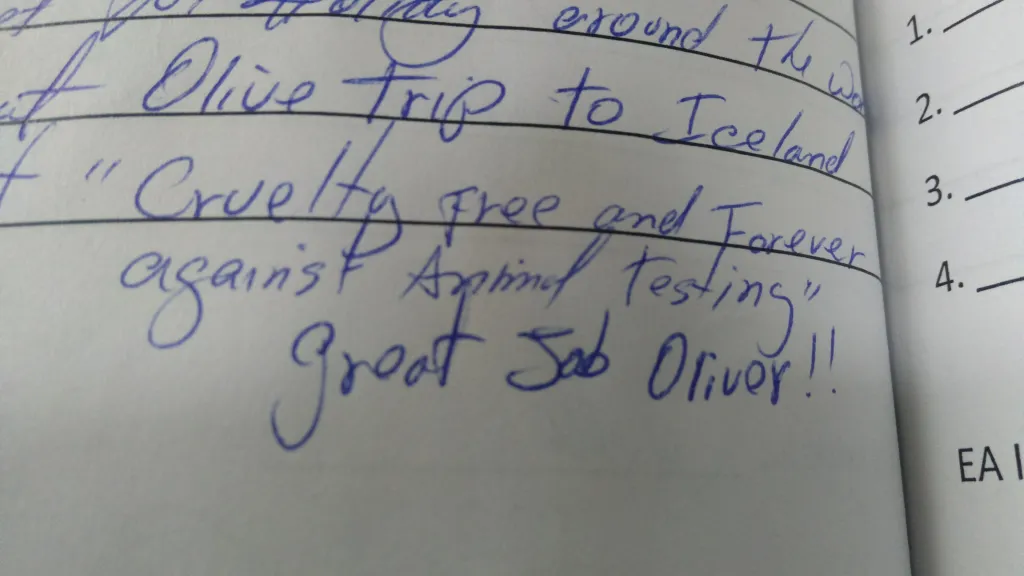 around the
Olive Trip to Iceland
"Cruelty Free and Forever
against Animal Testing"
great Job Oliver!!
1.
2.
3.
4.
EA